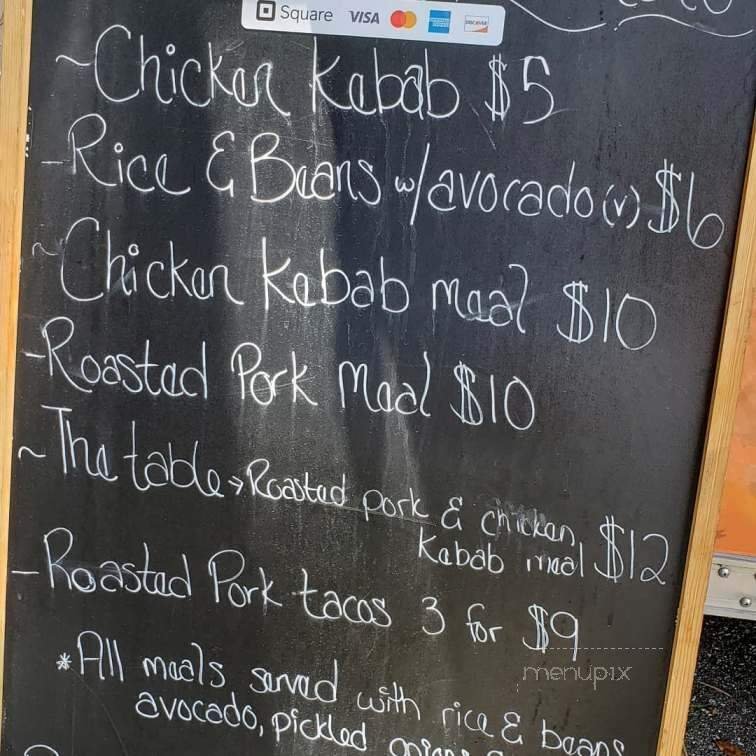 Square VISA DISCOVER
~Chicken Kebab $5
-Rice & Beans w/avocado (v) $6
~Chicken Kebab Meal $10
-Roasted Pork Meal $10
~The table → Roasted pork & chicken
Kebab meal $12
-Roasted Pork tacos 3 for $9
*All meals served with rice & beans
avocado, pickled onions
menupix